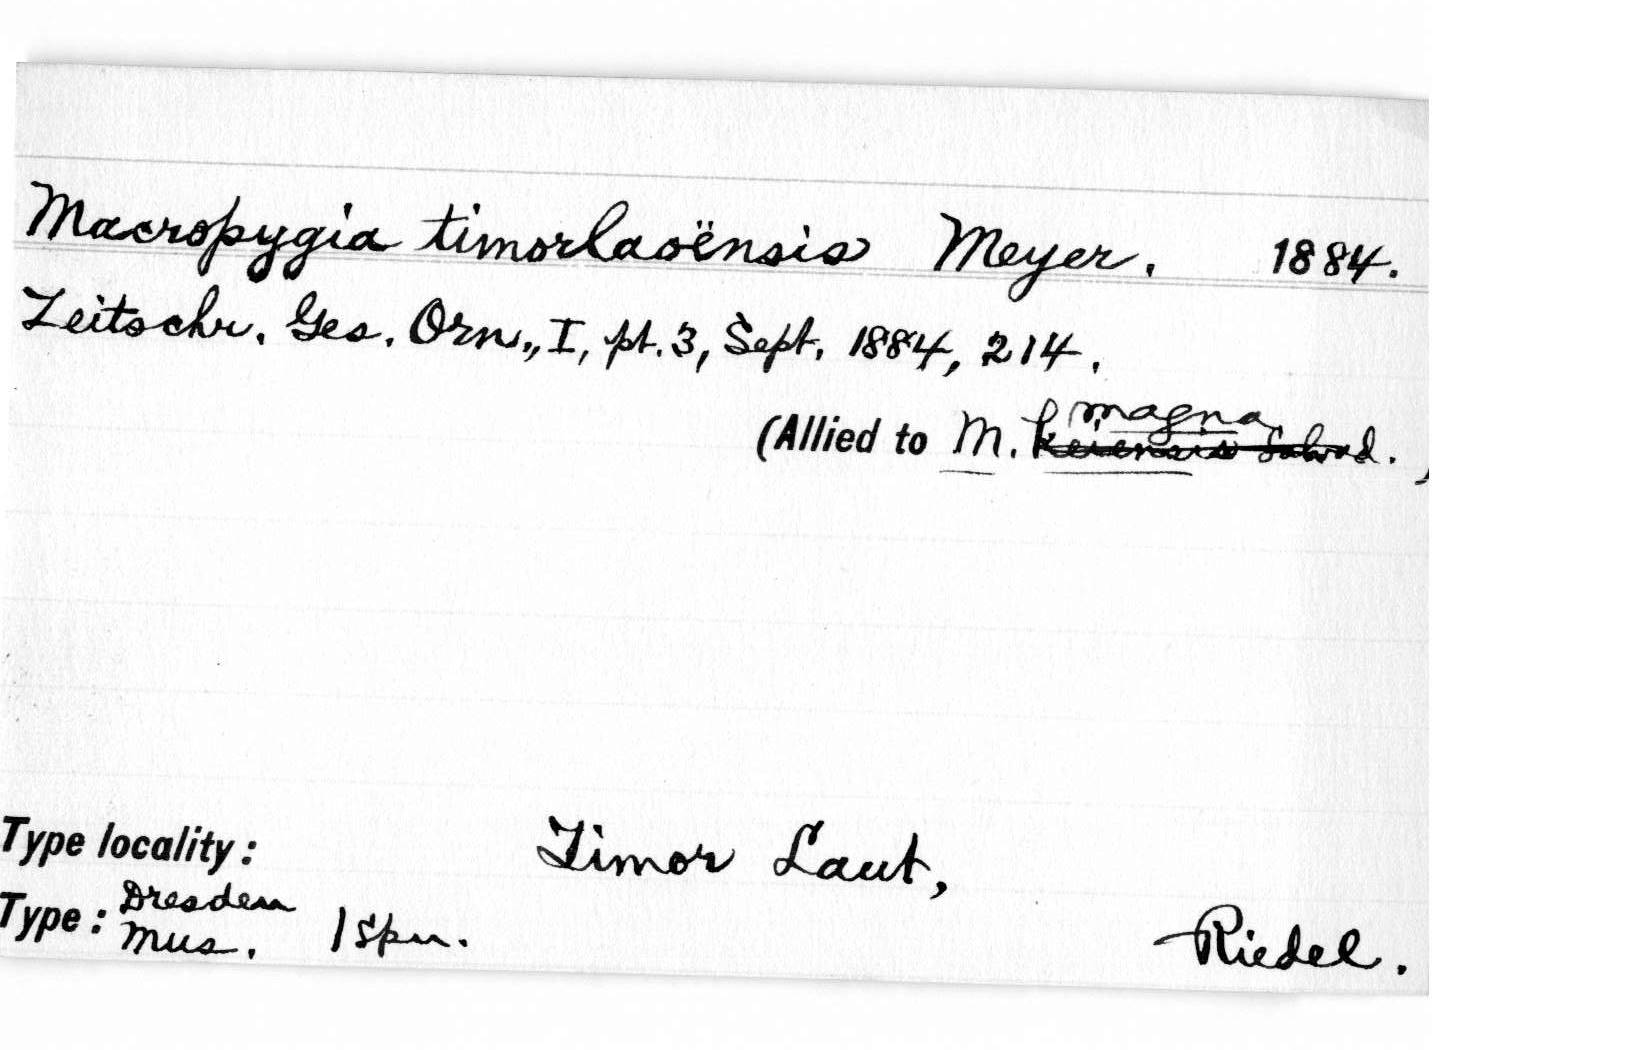 Macropygia timorlaoënsis Meyer. 1884.
Zeitschr. Ges. Orn., I, pt. 3, Sept. 1884, 214.
magna
(Allied to M. keiensis Salvad.)
Type locality: Timor Laut,
Type: Dresden Mus. 1 spm. Riedel.